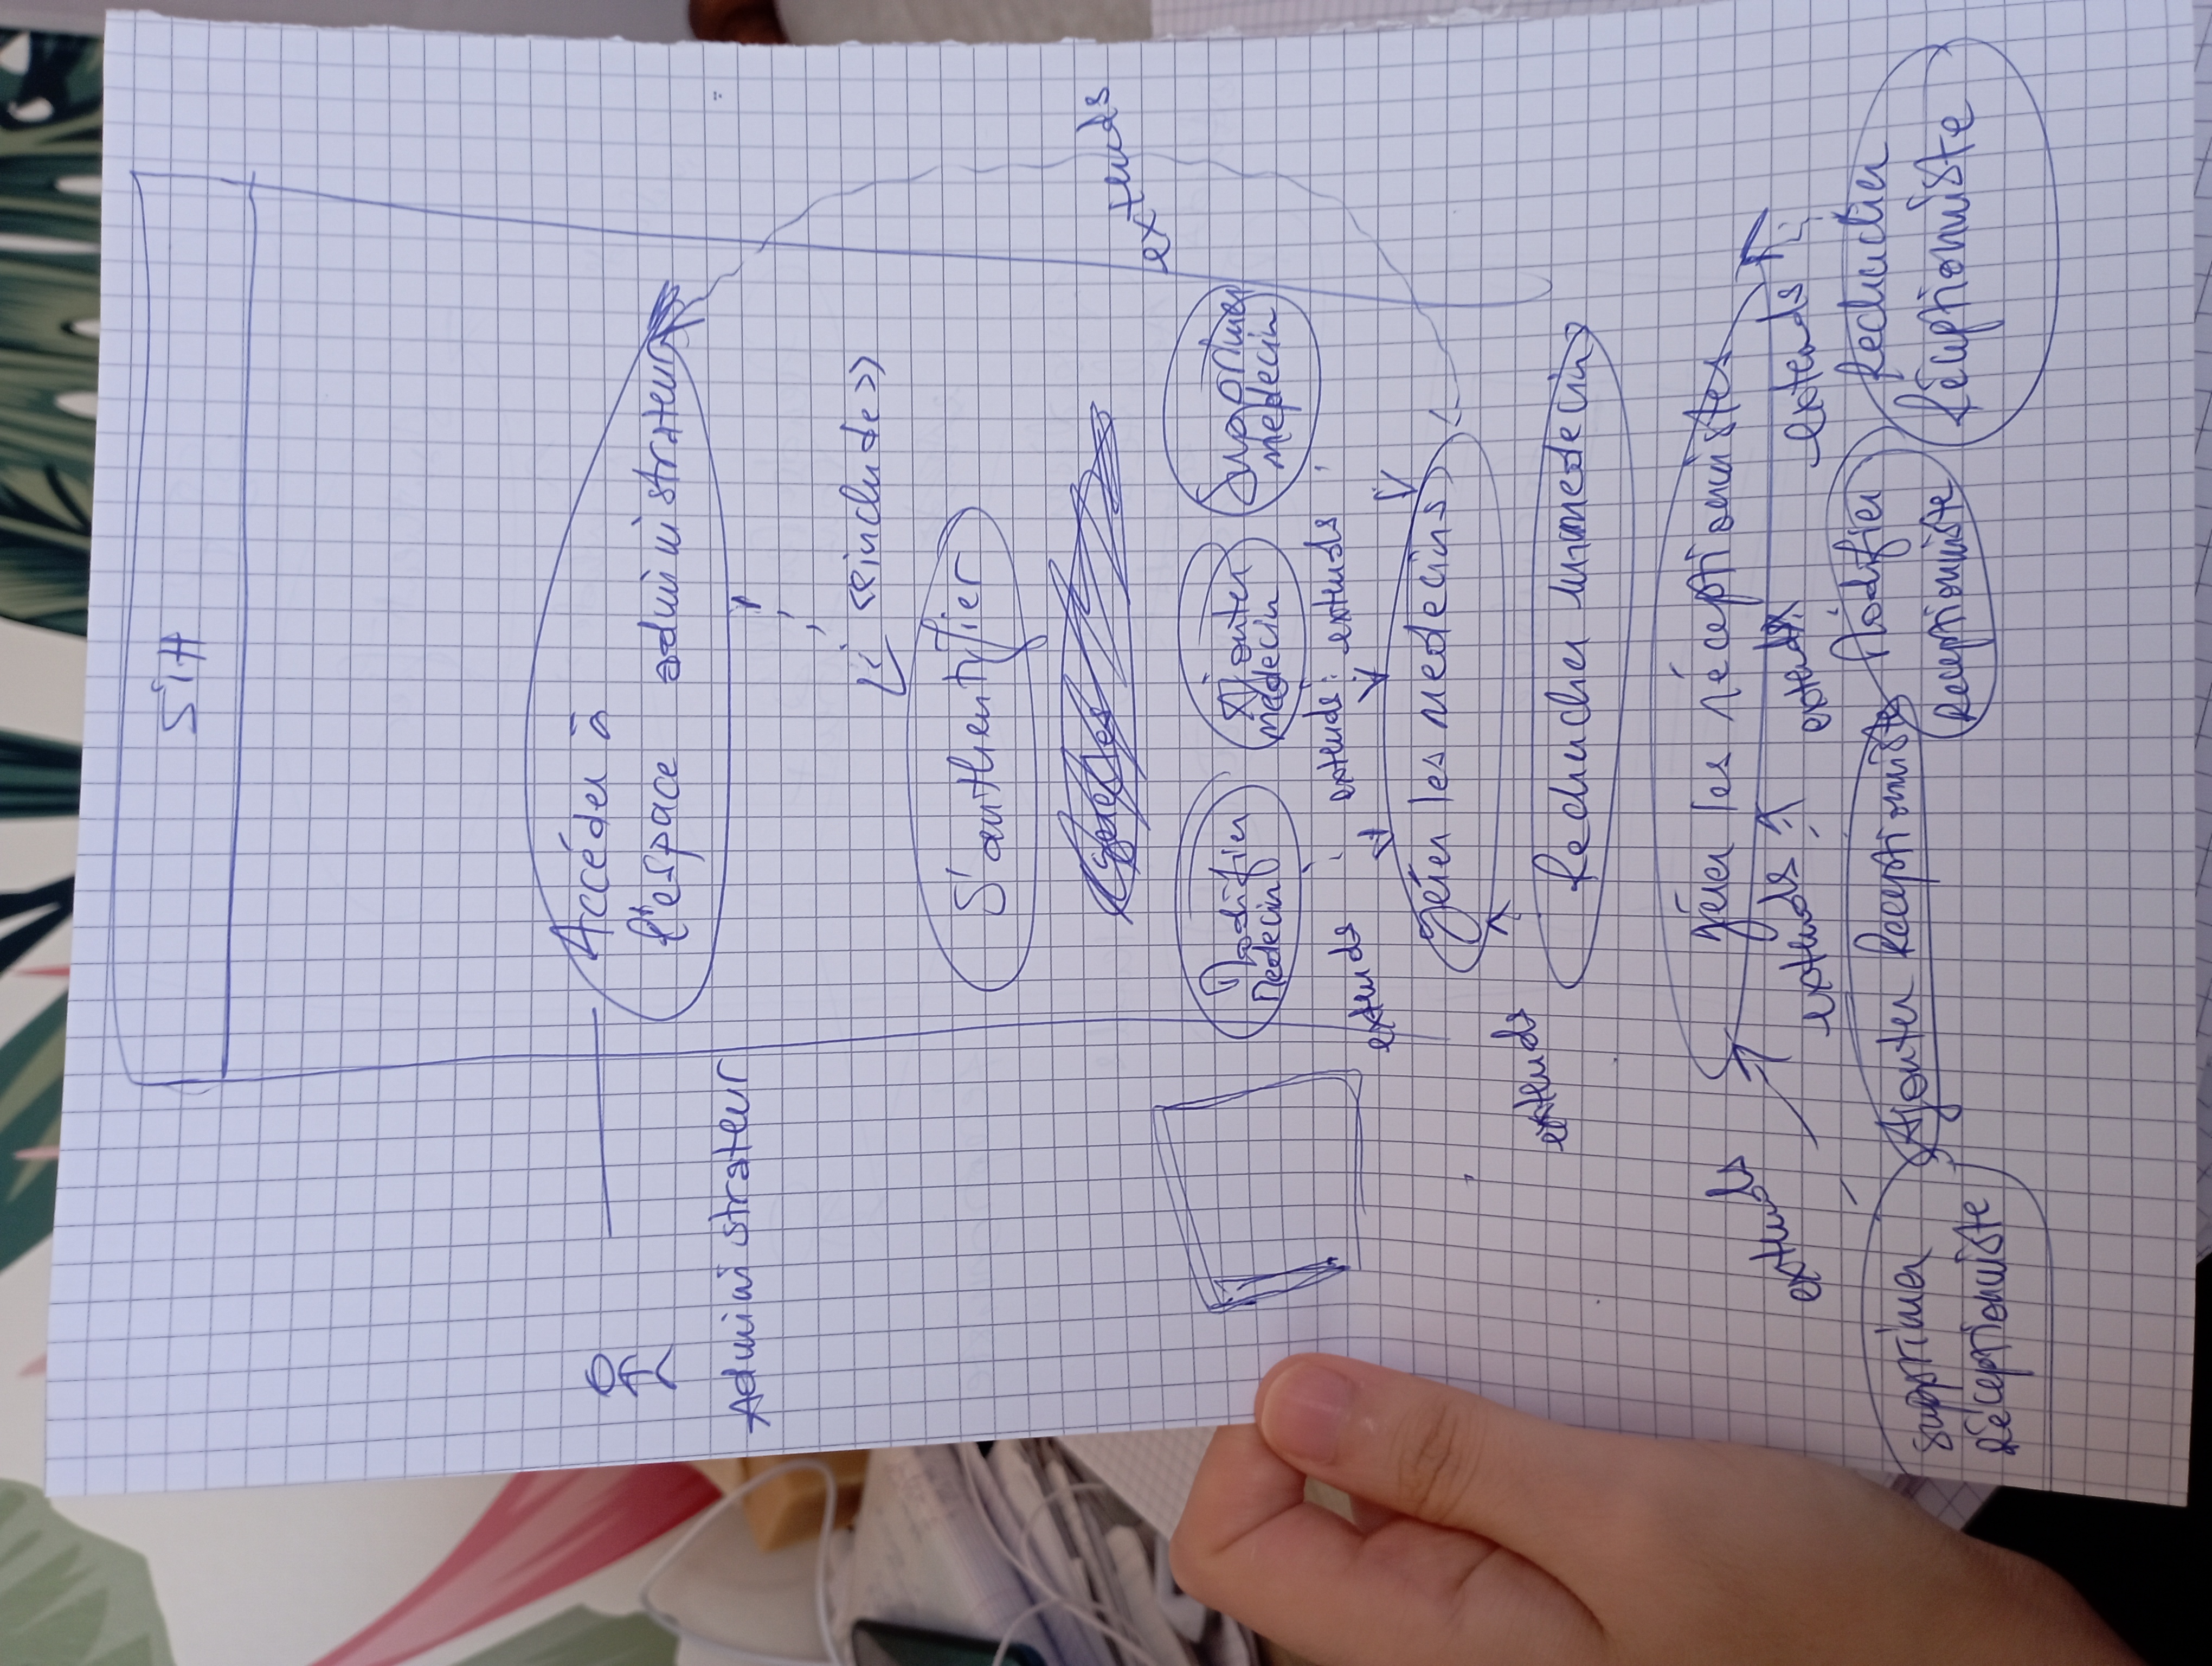 SIH
Accéder à
l'espace administrateur
Administrateur
<<include>>
S'authentifier
gérer les
extends
Modifier
Medecin
Ajouter
medecin
Supprimer
medecin
extends
extends
extends
gérer les medecins
extends
Rechercher un medecin
gérer les réceptionnistes
extends
extends
extends
extends
Supprimer
Réceptionniste
Ajouter Receptionniste
Modifier
Receptionniste
Rechercher
Réceptionniste